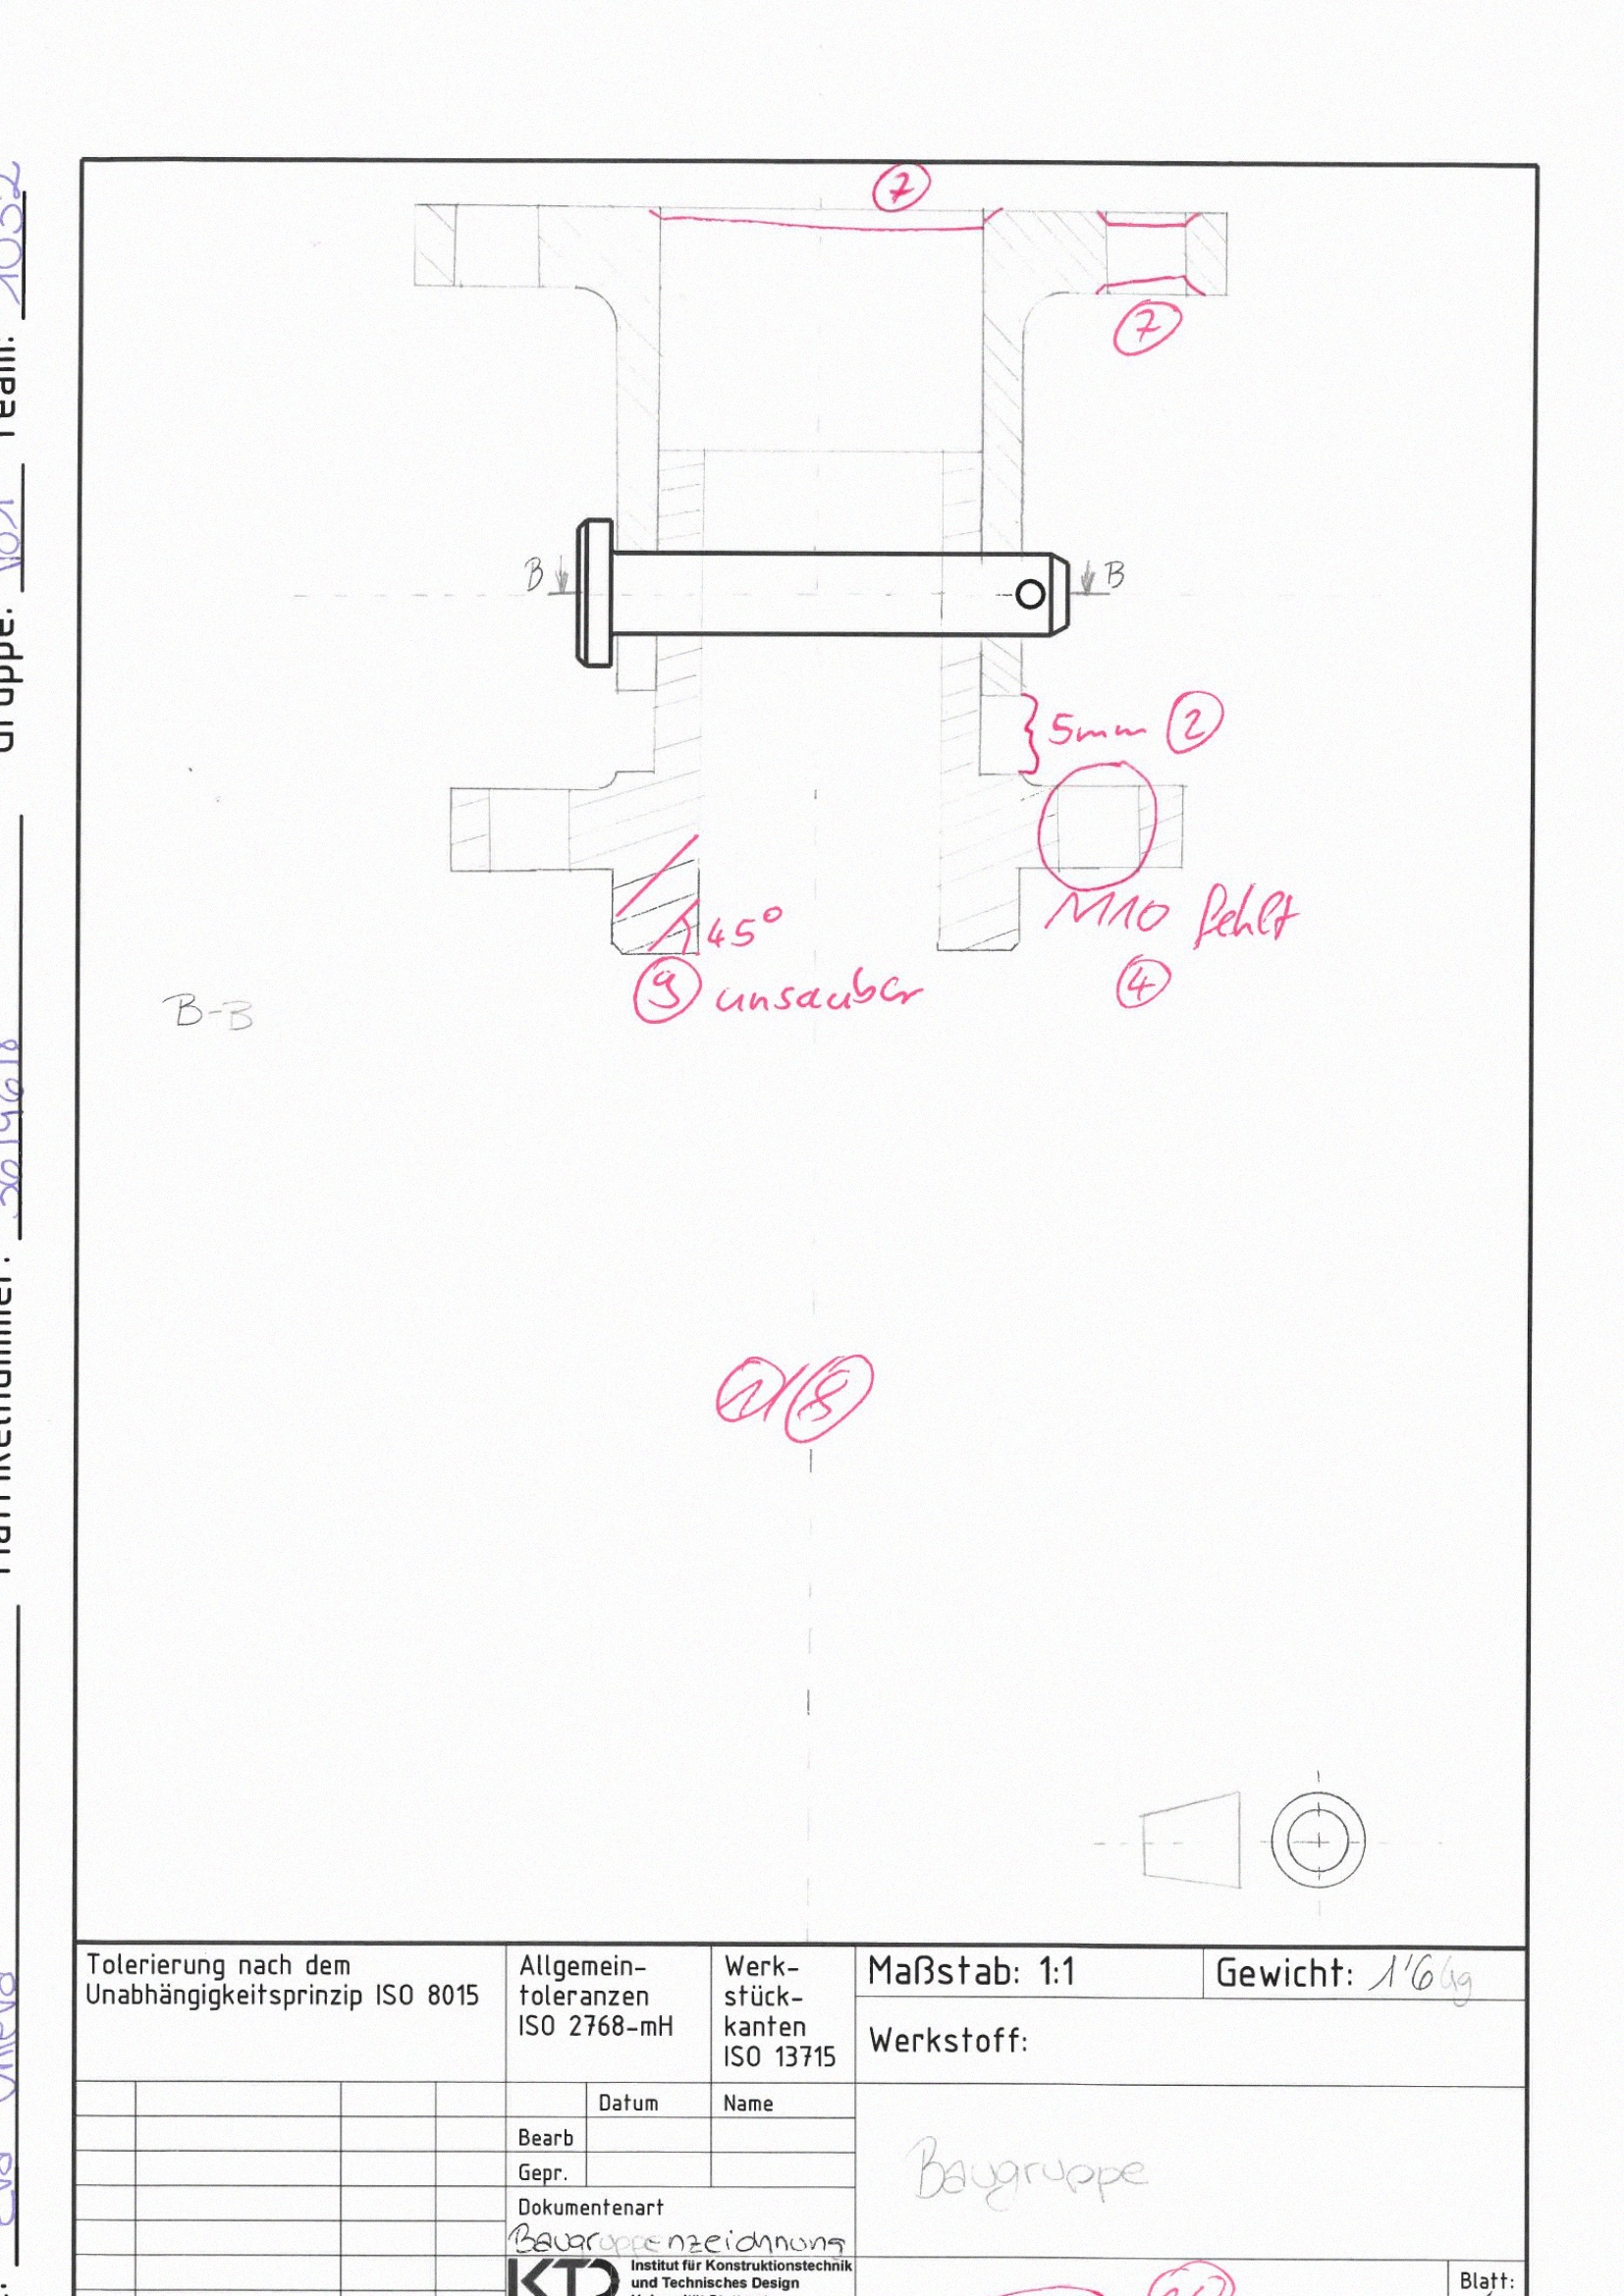 7
7
B
B
5mm 2
M10 fehlt
4
45°
9 unsauber
B-B
1/8
Tolerierung nach dem
Unabhängigkeitsprinzip ISO 8015
Allgemein-
toleranzen
ISO 2768-mH
Werk-
stück-
kanten
ISO 13715
Maßstab: 1:1
Gewicht: 1'6 kg
Werkstoff:
Datum
Name
Bearb
Gepr.
Dokumentenart
Baugruppenzeichnung
Baugruppe
KTD
Institut für Konstruktionstechnik
und Technisches Design
Blatt:
Team: 1032
Gruppe: V01